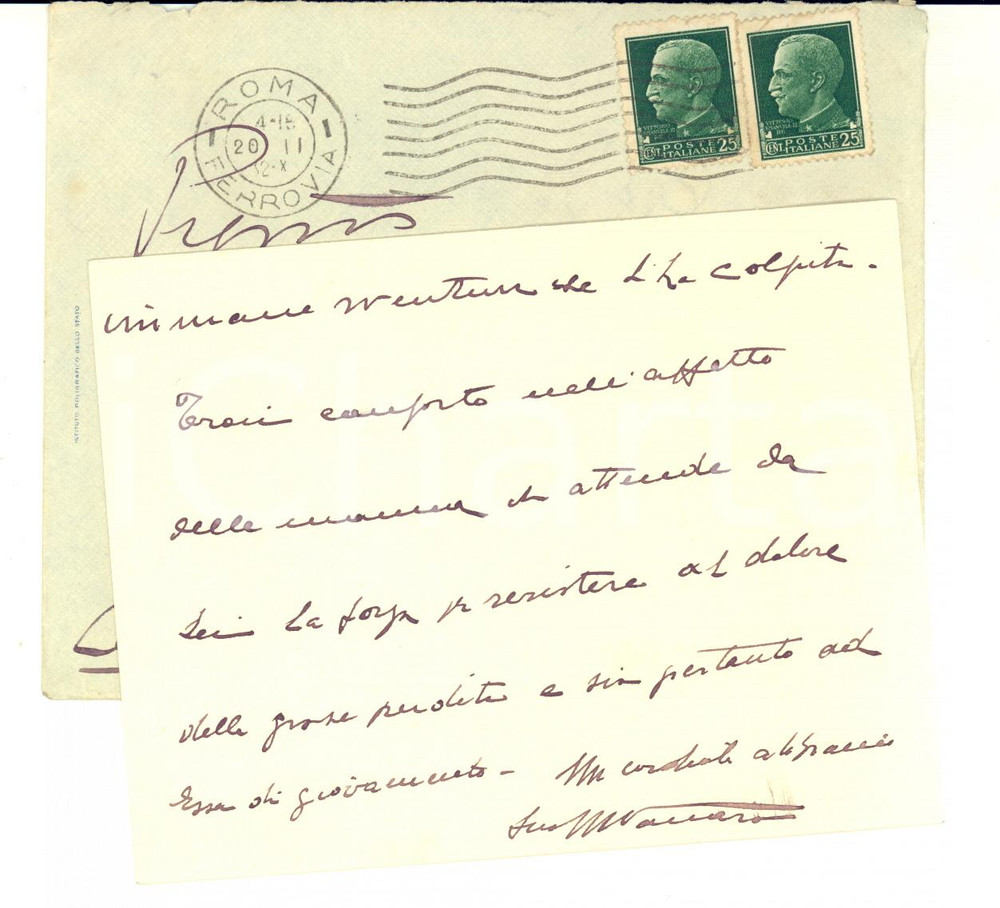 ROMA
4-18
20 II
FERROVIA
VITTORIO EMANUELE III RE
CENT. 25
POSTE ITALIANE
VITTORIO EMANUELE III RE
CENT. 25
POSTE ITALIANE
ISTITUTO POLIGRAFICO DELLO STATO
immane sventura che L'ha colpita.
Trovi conforto nell'affetto
della mamma ch attende da
Lei la forza pr resistere al dolore
della grave perdita e sia pertanto ad
Essa di giovamento - Un cordiale abbraccio
Suo
iCharta